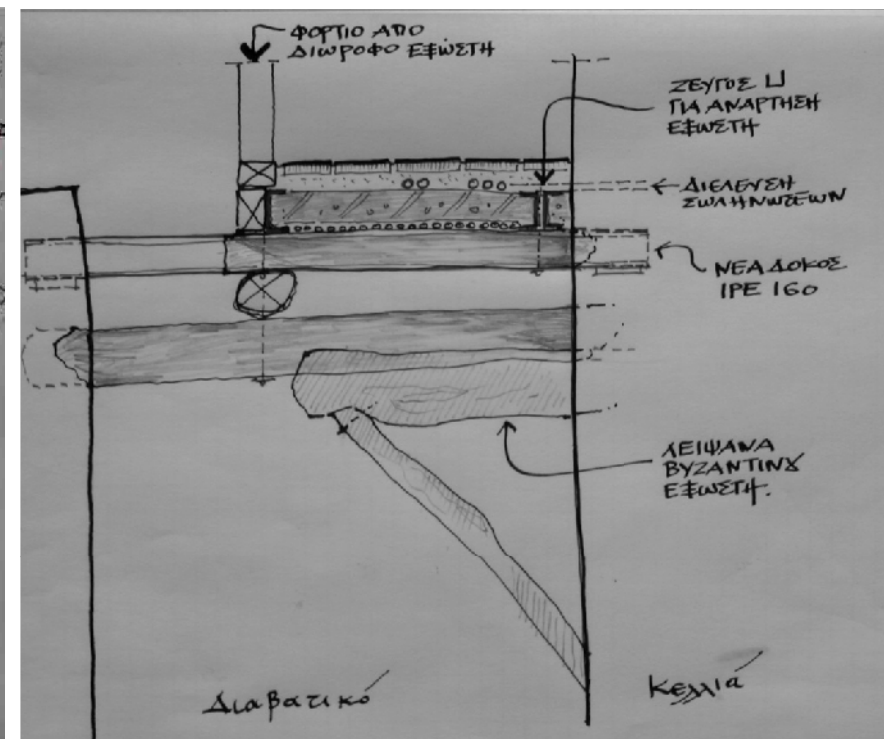 ΦΟΡΤΙΟ ΑΠΟ
ΔΙΩΡΟΦΟ ΕΞΩΣΤΗ
ΖΕΥΓΟΣ ⊔
ΓΙΑ ΑΝΑΡΤΗΣΗ
ΕΞΩΣΤΗ
ΔΙΕΛΕΥΣΗ
ΣΩΛΗΝΩΣΕΩΝ
ΝΕΑ ΔΟΚΟΣ
IPE 160
ΛΕΙΨΑΝΑ
ΒΥΖΑΝΤΙΝȢ
ΕΞΩΣΤΗ.
Διαβατικό
Κελλιά